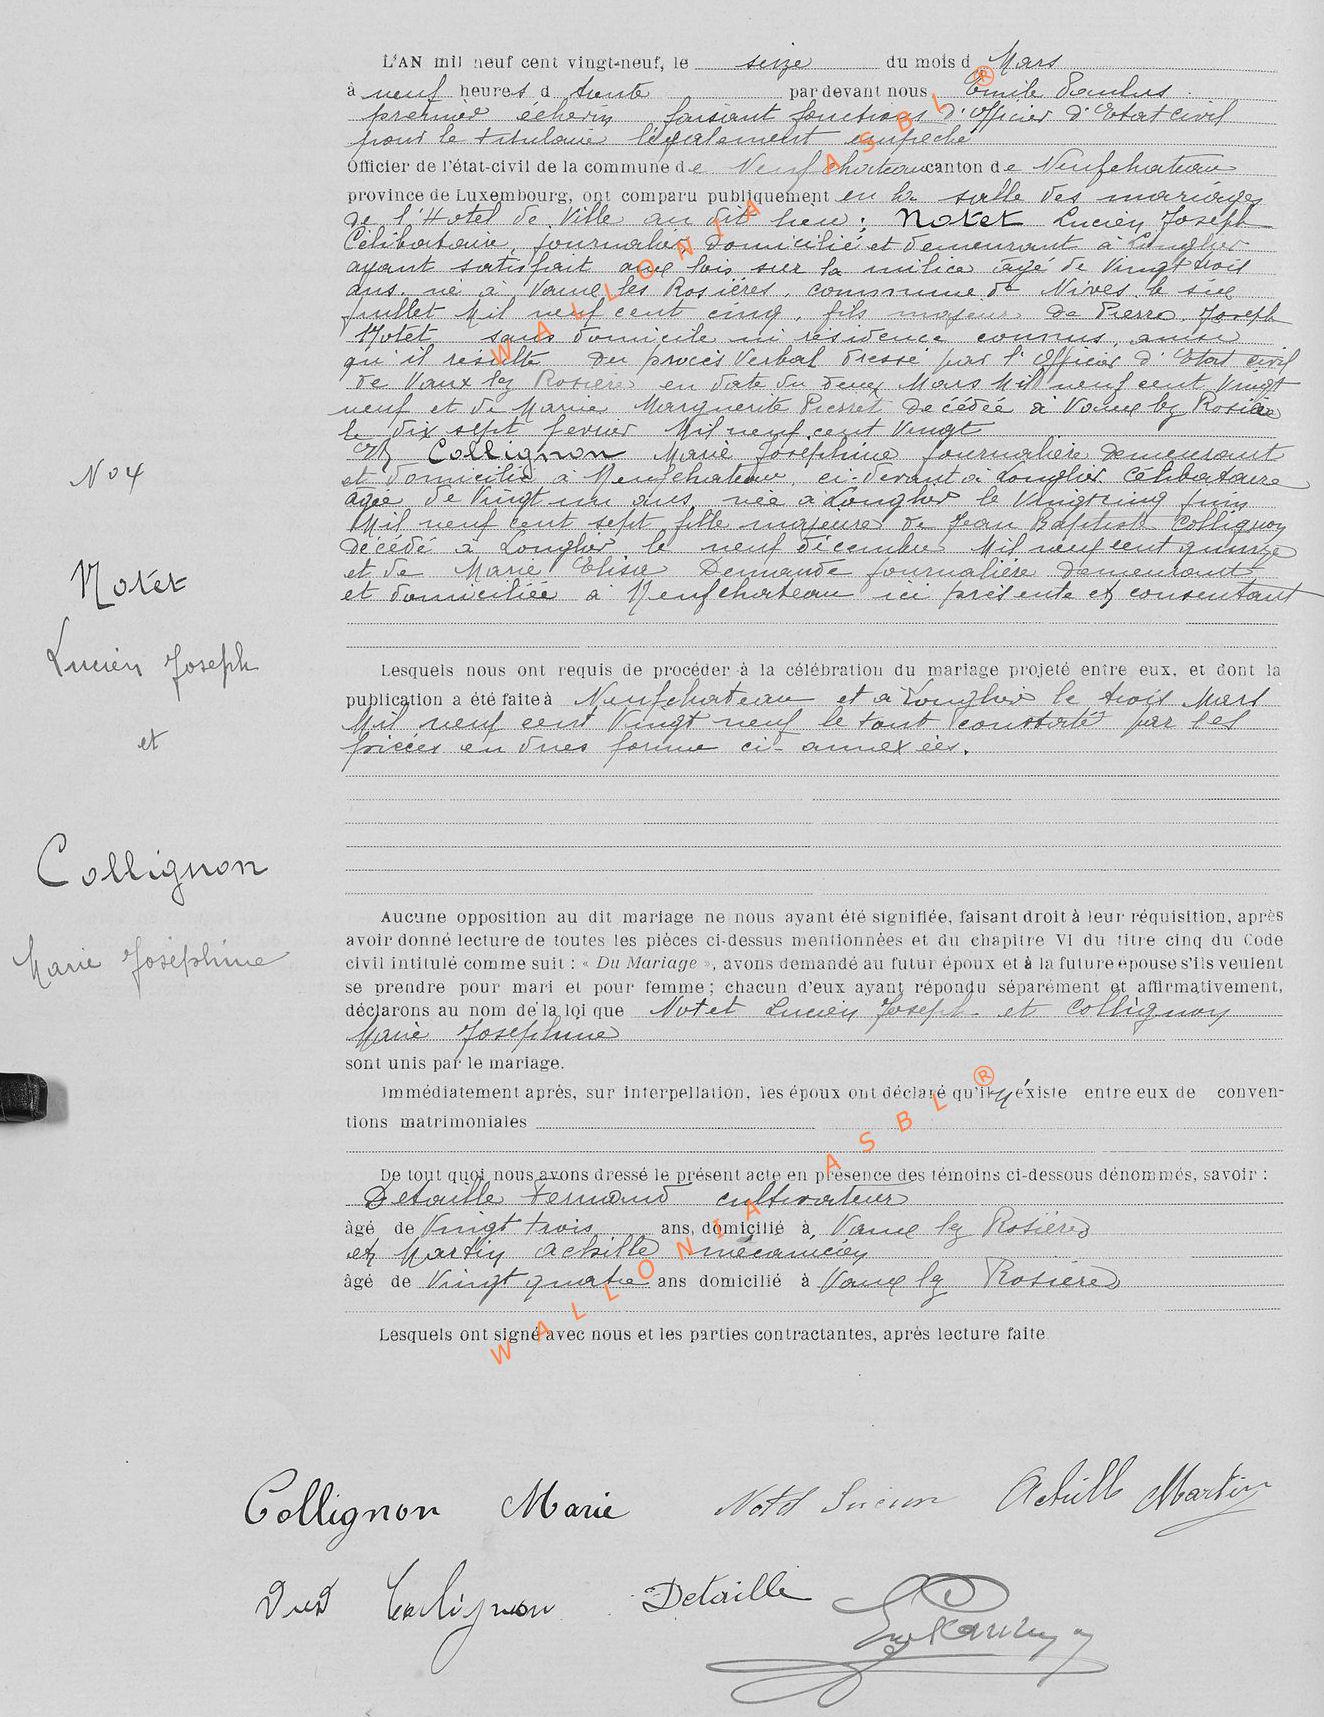 L'AN mil neuf cent vingt-neuf, le seize du mois d Mars
à neuf heures d trente par devant nous Emile Paulus
premier échevin faisant fonctions d'officier d'Etat civil
pour le titulaire légalement empeché
Officier de l'état-civil de la commune de Neufchateau canton de Neufchateau
province de Luxembourg, ont comparu publiquement en la salle des mariages
de l'Hotel de Ville au dit lieu: Notet Lucien Joseph
Célibataire, journalier domicilié et demeurant à Longlier
ayant satisfait aux lois sur la milice agé de Vingt trois
ans. né à Vaux les Rosières, commune de Nives le six
juillet Mil neuf cent cinq, fils majeur de Pierre Joseph
Notet, sans domicile ni résidence connus, ainsi
qu'il résulte du procès Verbal dressé par l'Officier d'Etat civil
de Vaux lez Rosière en date du deux Mars Mil neuf cent Vingt
neuf et de Marie Marguerite Pierret décédée à Vaux lez Rosière
le dix sept fevrier Mil neuf cent Vingt
Et Collignon Marie Joséphine journalière demeurant
et domicilié à Neufchateau, ci-devant à Longlier Célibataire
agée de Vingt un ans, née à Longlier le Vingt cinq juin
Mil neuf cent sept fille majeure de Jean Baptiste Collignon
décédé à Longlier le neuf décembre Mil neuf cent quinze
et de Marie Elise Demande journalière demeurant
et domiciliée à Neufchateau ici présente et consentant
No 4
Notet
Lucien Joseph
et
Collignon
Marie Joséphine
Lesquels nous ont requis de procéder à la célébration du mariage projeté entre eux, et dont la
publication a été faite à Neufchateau et à Longlier le trois Mars
Mil neuf cent Vingt neuf le tout constaté par les
pièces en dues forme ci-annexées.
Aucune opposition au dit mariage ne nous ayant été signifiée, faisant droit à leur réquisition, après
avoir donné lecture de toutes les pièces ci-dessus mentionnées et du chapitre VI du titre cinq du Code
civil intitulé comme suit : « Du Mariage », avons demandé au futur époux et à la future épouse s'ils veulent
se prendre pour mari et pour femme ; chacun d'eux ayant répondu séparément et affirmativement,
déclarons au nom de la loi que Notet Lucien Joseph et Collignon
Marie Josephine
sont unis par le mariage.
Immédiatement après, sur interpellation, les époux ont déclaré qu'il n'éxiste entre eux de conven-
tions matrimoniales
De tout quoi nous avons dressé le présent acte en présence des témoins ci-dessous dénommés, savoir :
Detaille Fernand cultivateur
âgé de Vingt trois ans, domicilié à Vaux lez Rosières
et Martin Achille mécanicien
âgé de Vingt quatre ans domicilié à Vaux lez Rosières
Lesquels ont signé avec nous et les parties contractantes, après lecture faite
Collignon Marie Notet Lucien Achille Martin
Collignon Detaille
WALLONIA ASBL ®
WALLONIA ASBL ®